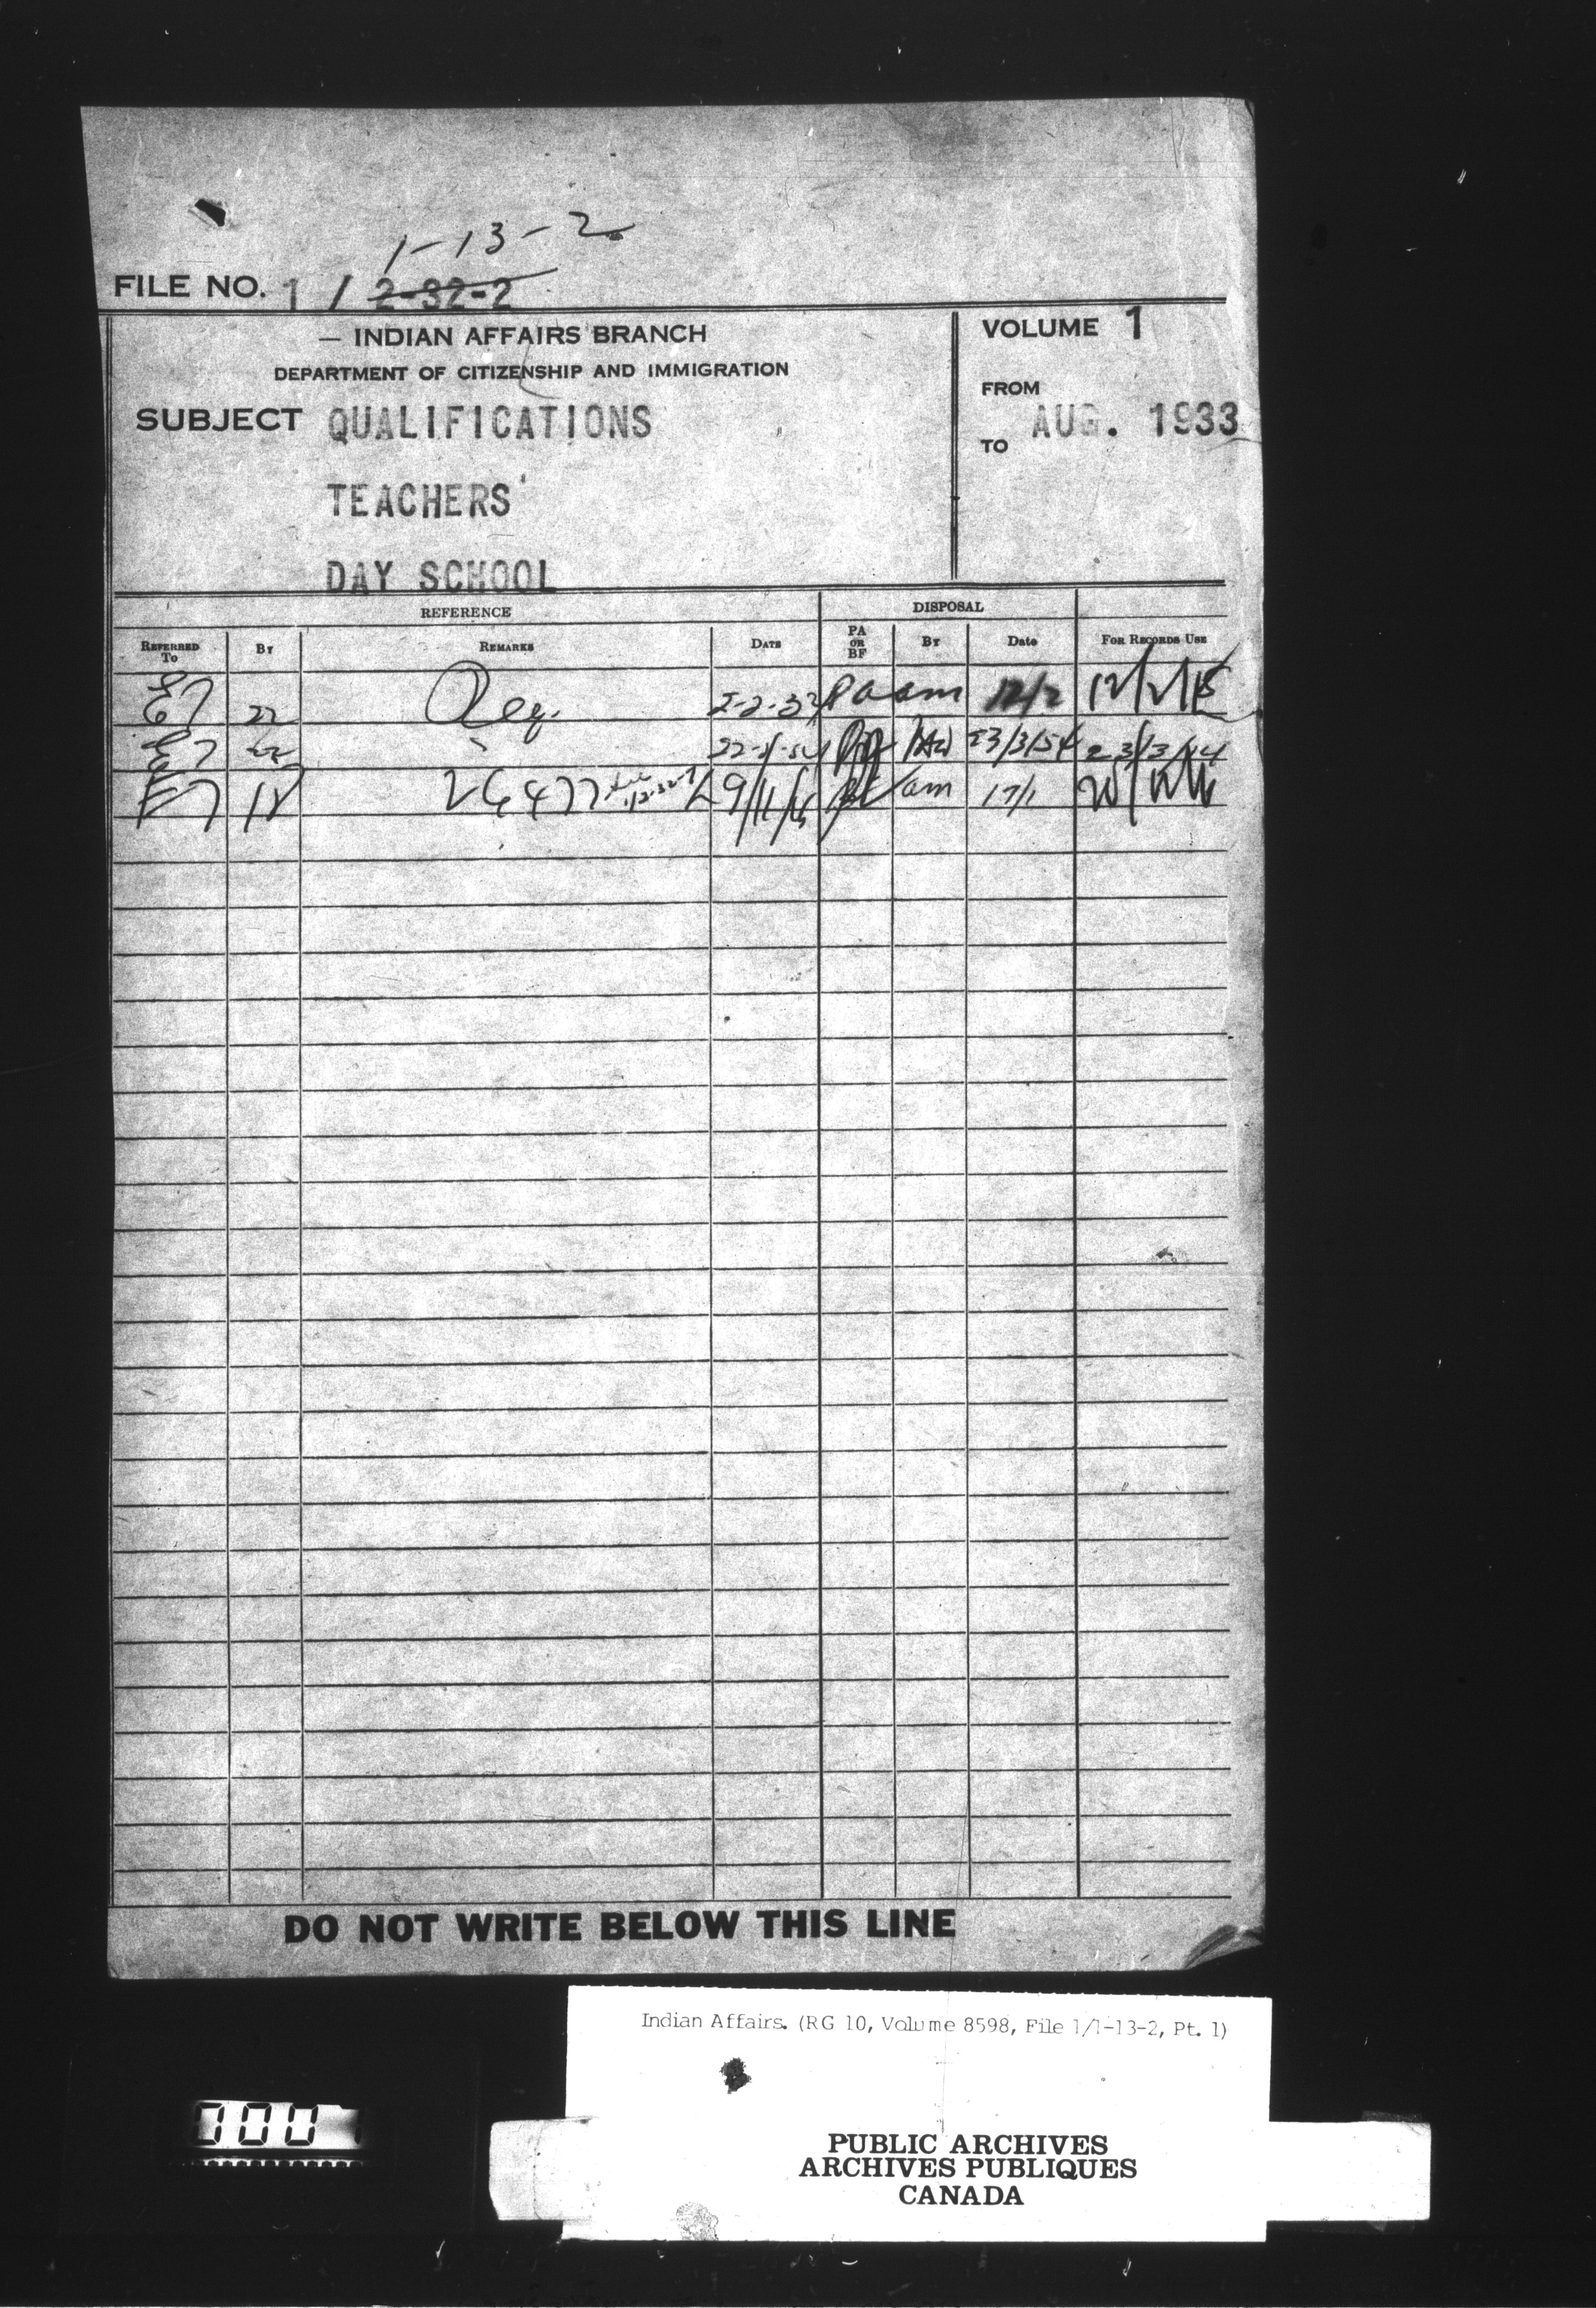 1-13-2
FILE NO. 1 / 2-32-2
— INDIAN AFFAIRS BRANCH
DEPARTMENT OF CITIZENSHIP AND IMMIGRATION
SUBJECT QUALIFICATIONS
TEACHERS'
DAY SCHOOL
VOLUME 1
FROM
AUG. 1933
TO
REFERENCE DISPOSAL
REFERRED TO BY REMARKS DATE PA OR BF BY Date FOR RECORDS USE
E7 22 Req. PA am 12/2
E7 23/3/54 23/3/54
E7 18 26477 am 17/1
DO NOT WRITE BELOW THIS LINE
Indian Affairs. (RG 10, Volume 8598, File 1/1-13-2, Pt. 1)
PUBLIC ARCHIVES
ARCHIVES PUBLIQUES
CANADA